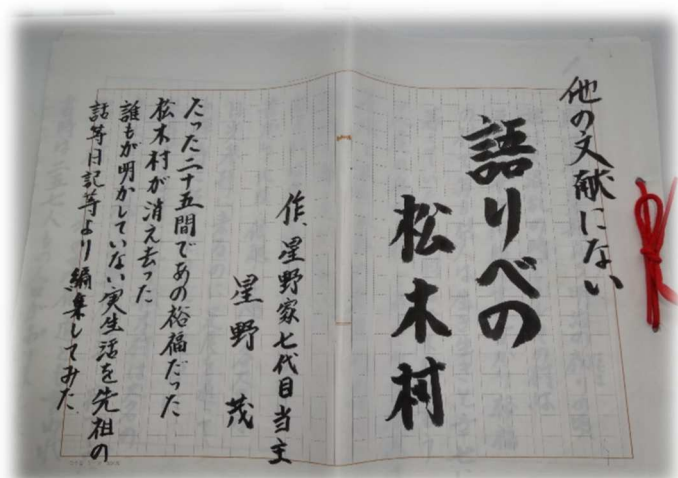 他の文献にない
語りべの
松木村
作、星野家七代目当主
星野 茂
たった二十五間であの裕福だった
松木村が消え去った
誰もが明かしていない実生活を先祖の
話等日記等より編集してみた